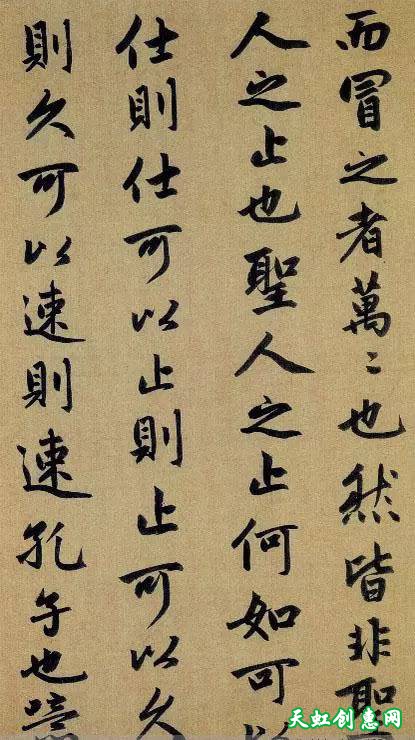 而冒之者萬〻也然皆非聖
人之止也聖人之止何如可以
仕則仕可以止則止可以久
則久可以速則速孔子也噫
天虹创惠网